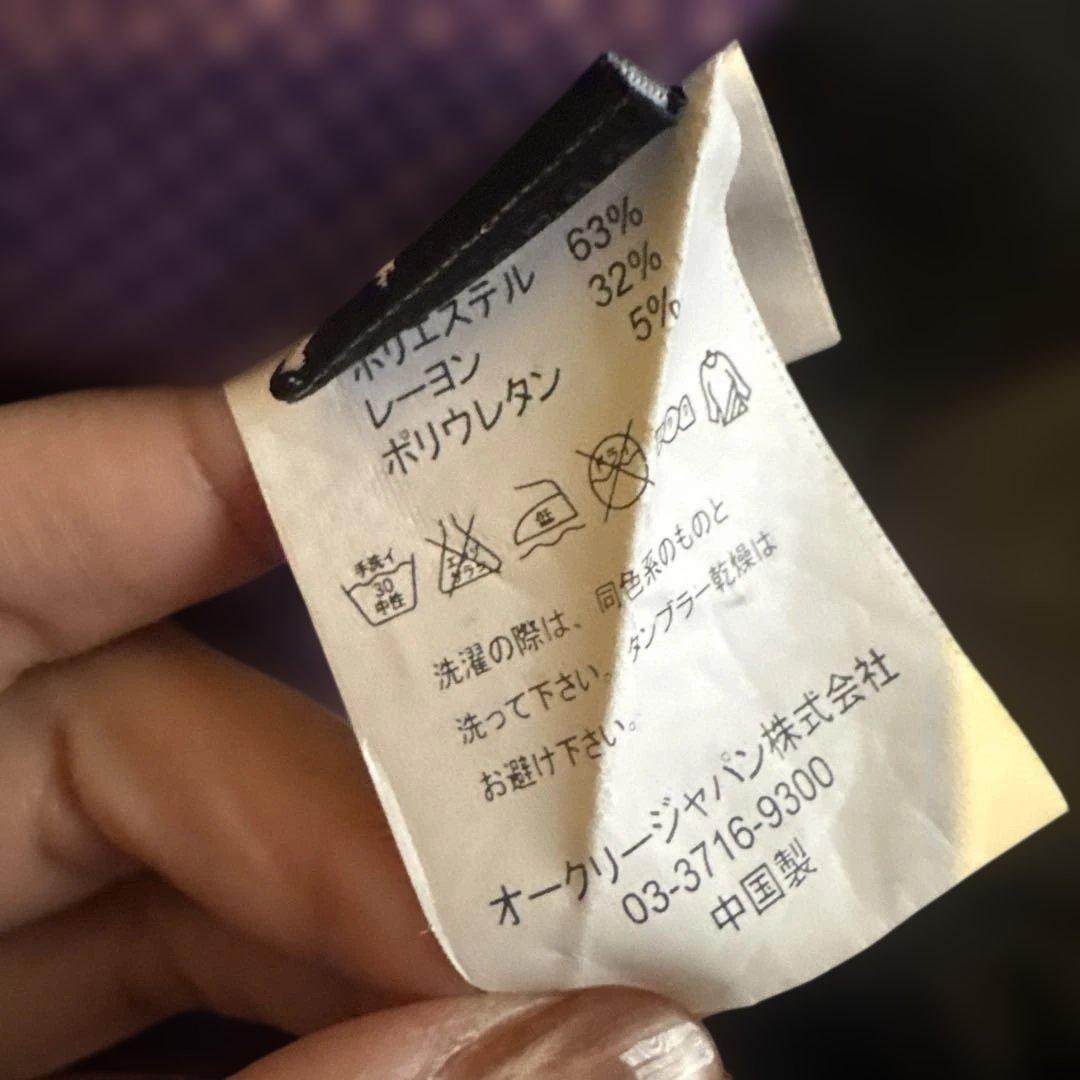 ポリエステル 63%
レーヨン 32%
ポリウレタン 5%
手洗イ
30
中性
エンソ
サラシ
低
ドライ
洗濯の際は、同色系のものと
洗って下さい。タンブラー乾燥は
お避け下さい。
オークリージャパン株式会社
03-3716-9300
中国製